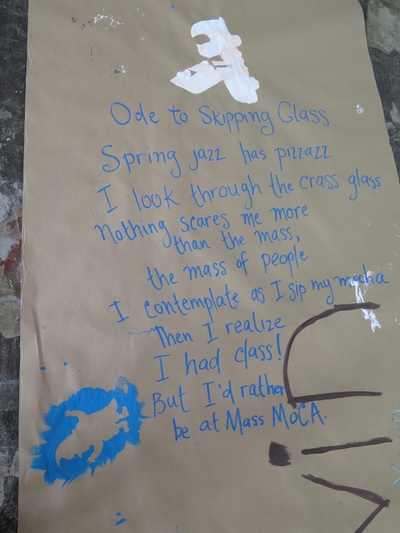 Ode to Skipping Class
Spring jazz has pizzazz
I look through the crass glass
Nothing scares me more
than the mass,
the mass of people
I contemplate as I sip my mocha
Then I realize
I had class!
But I'd rather
be at Mass MoCA.